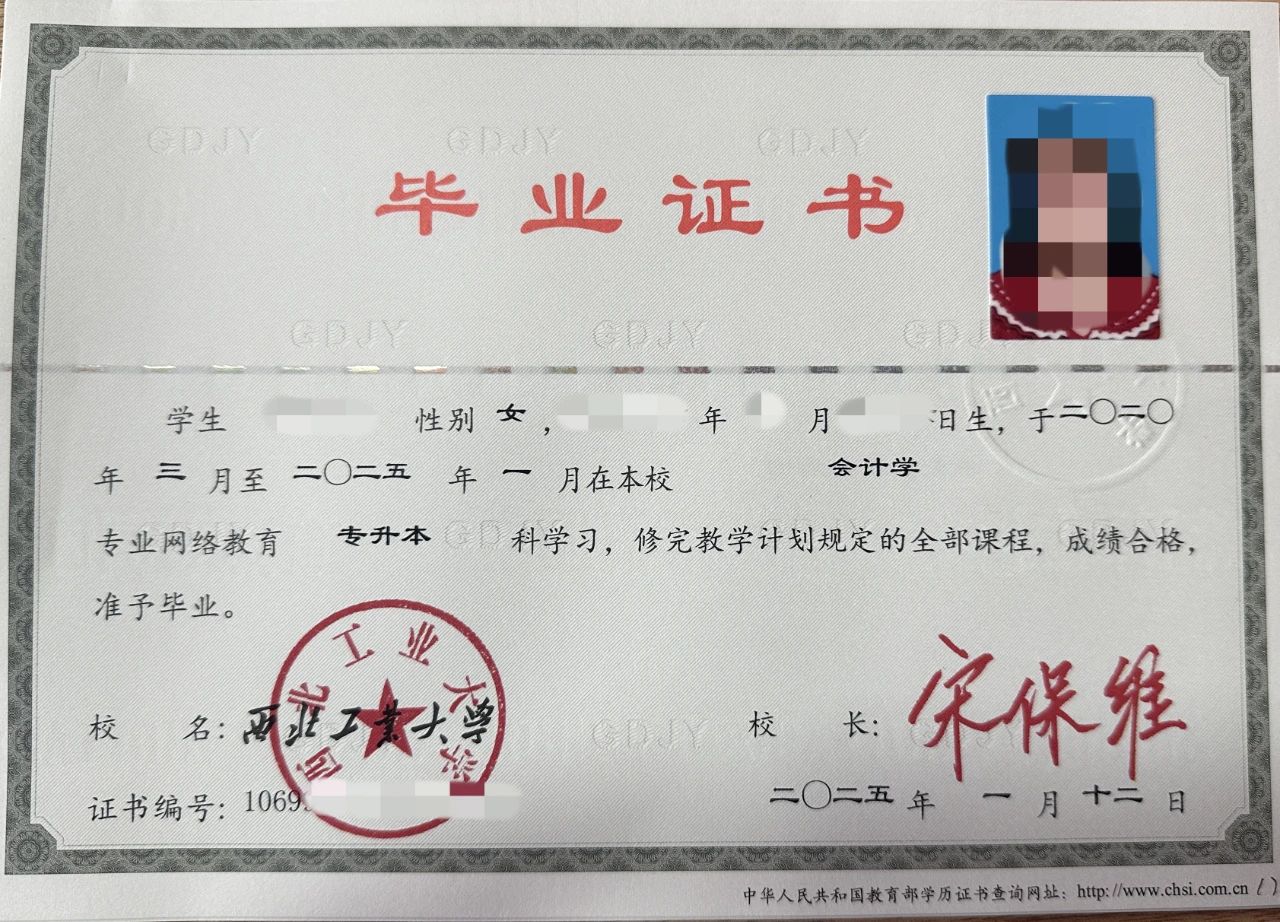 GDJY GDJY GDJY
毕业证书
GDJY GDJY GDJY
学生 性别 女， 年 月 日生，于二〇二〇
年 三 月至 二〇二五 年 一 月在本校 会计学
专业网络教育 专升本 科学习，修完教学计划规定的全部课程，成绩合格，
GDJY GDJY
准予毕业。
西北工业大学
校 名：西北工业大学 校 长：宋保维
GDJY
证书编号：1069 二〇二五 年 一 月 十二 日
中华人民共和国教育部学历证书查询网址：http://www.chsi.com.cn